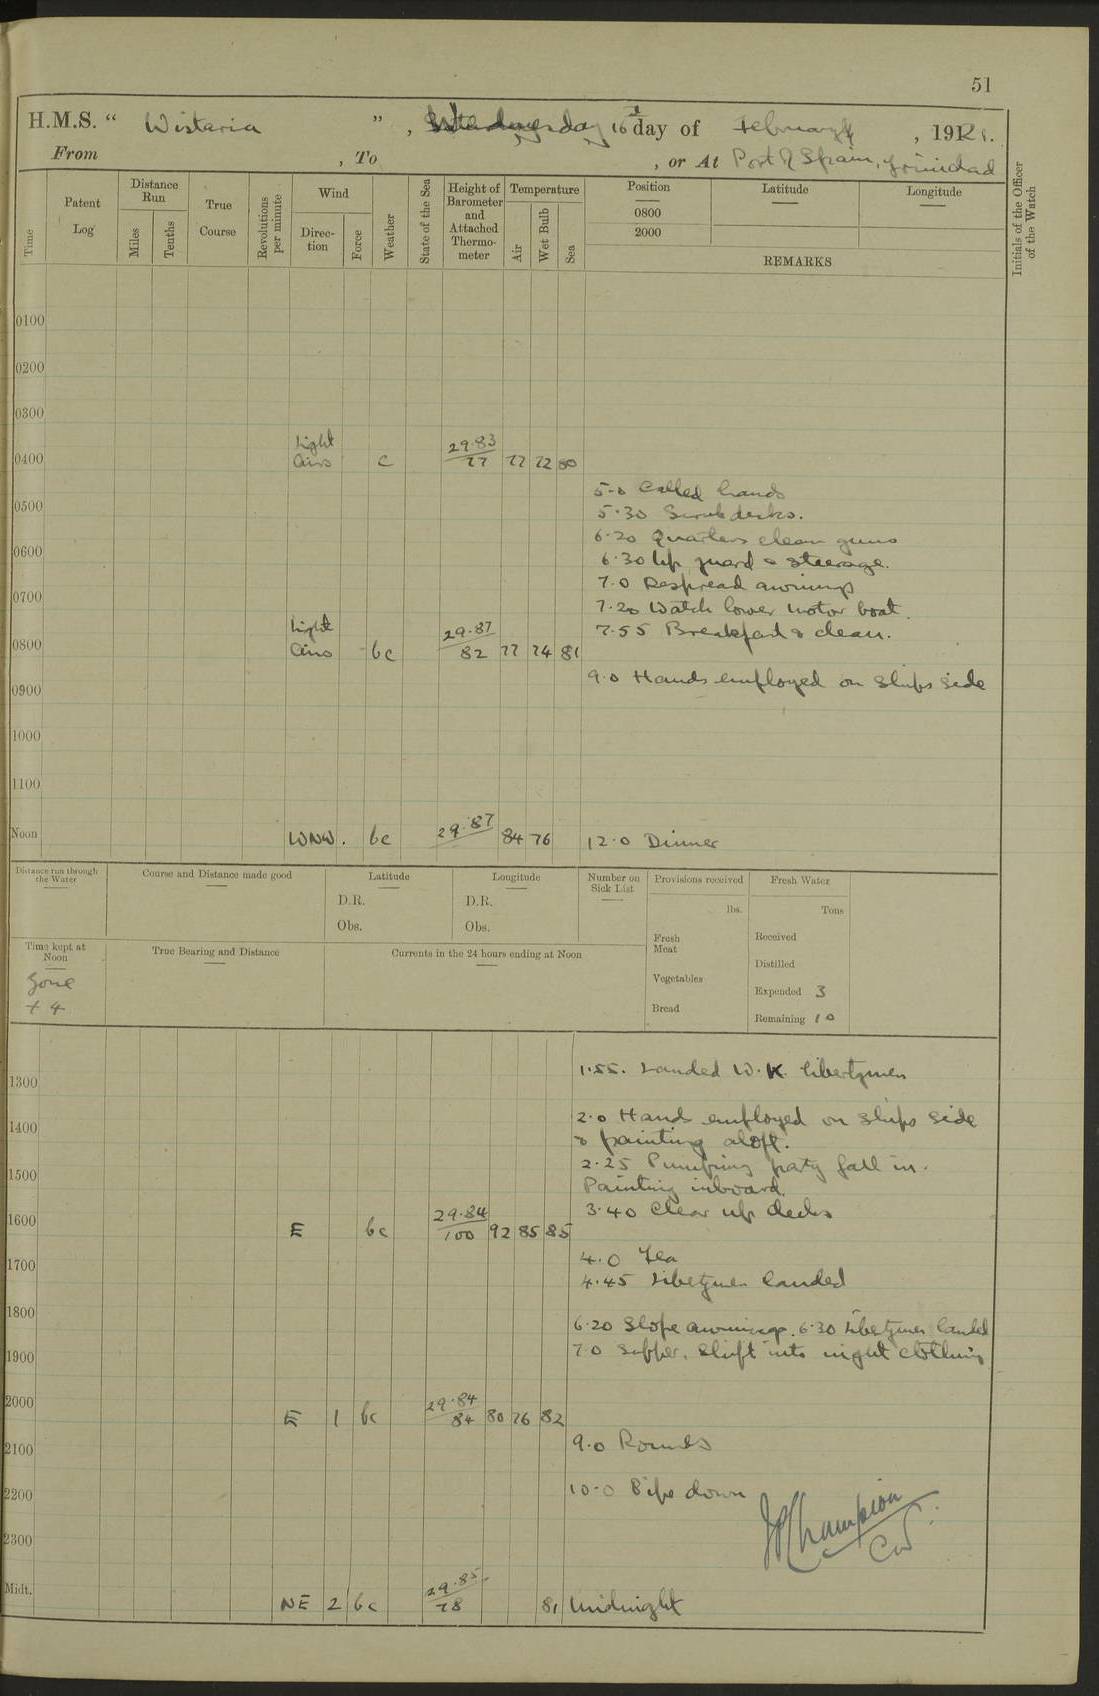 51
H.M.S. “ Wistaria ” , 16 day of February , 1921.
From , To , or At Port of Spain, Trinidad
Time
Patent Log
Distance Run
Miles
Tenths
True Course
Revolutions per minute
Wind
Direction
Force
Weather
State of the Sea
Height of Barometer and Attached Thermometer
Temperature
Air
Wet Bulb
Sea
Position
0800
2000
Latitude
Longitude
REMARKS
Initials of the Officer of the Watch
0100
0200
0300
0400 Light Airs c 29.83 77 77 72 80
5.0 Called hands
0500
5.30 Scrub decks.
6.20 Quarters clean guns
0600
6.30 Up guard & steerage.
7.0 Respread awnings
0700
7.20 Watch lower motor boat.
7.55 Breakfast & clean.
0800 Light Airs bc 29.87 82 77 74 81
9.0 Hands employed on ships side
0900
1000
1100
Noon WNW. bc 29.87 84 76 12.0 Dinner
Distance run through the Water
Course and Distance made good
Latitude
D.R.
Obs.
Longitude
D.R.
Obs.
Number on Sick List
Provisions received
lbs.
Fresh Meat
Vegetables
Bread
Fresh Water
Tons
Received
Distilled
Expended 3
Remaining 10
Time kept at Noon
Zone
+ 4
True Bearing and Distance
Currents in the 24 hours ending at Noon
1.55. Landed W.K. libertymen
1300
2.0 Hands employed on ships side
1400
& painting aloft.
2.25 Pumping party fall in.
1500
Painting inboard.
3.40 Clear up decks
1600 E bc 29.84 100 92 85 85
4.0 Tea
1700
4.45 Libertymen landed
1800
6.20 Slope awnings. 6.30 Libertymen landed
7.0 Supper. Shift into night clothing
1900
2000 E 1 bc 29.84 84 80 76 82
9.0 Rounds
2100
10.0 Pipe down
2200
Champion
2300
Midt. NE 2 bc 29.85 78 81 Midnight